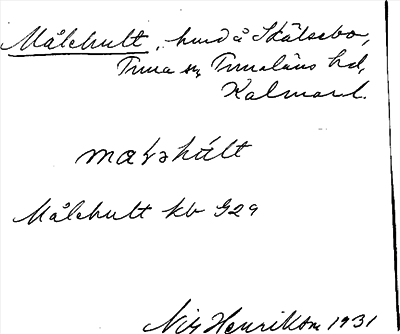 Målehult, hmd å Skälsebo,
Tuna sn, Tunaläns hd,
Kalmar l.
målehult kb G29
Nils Henrikson 1931